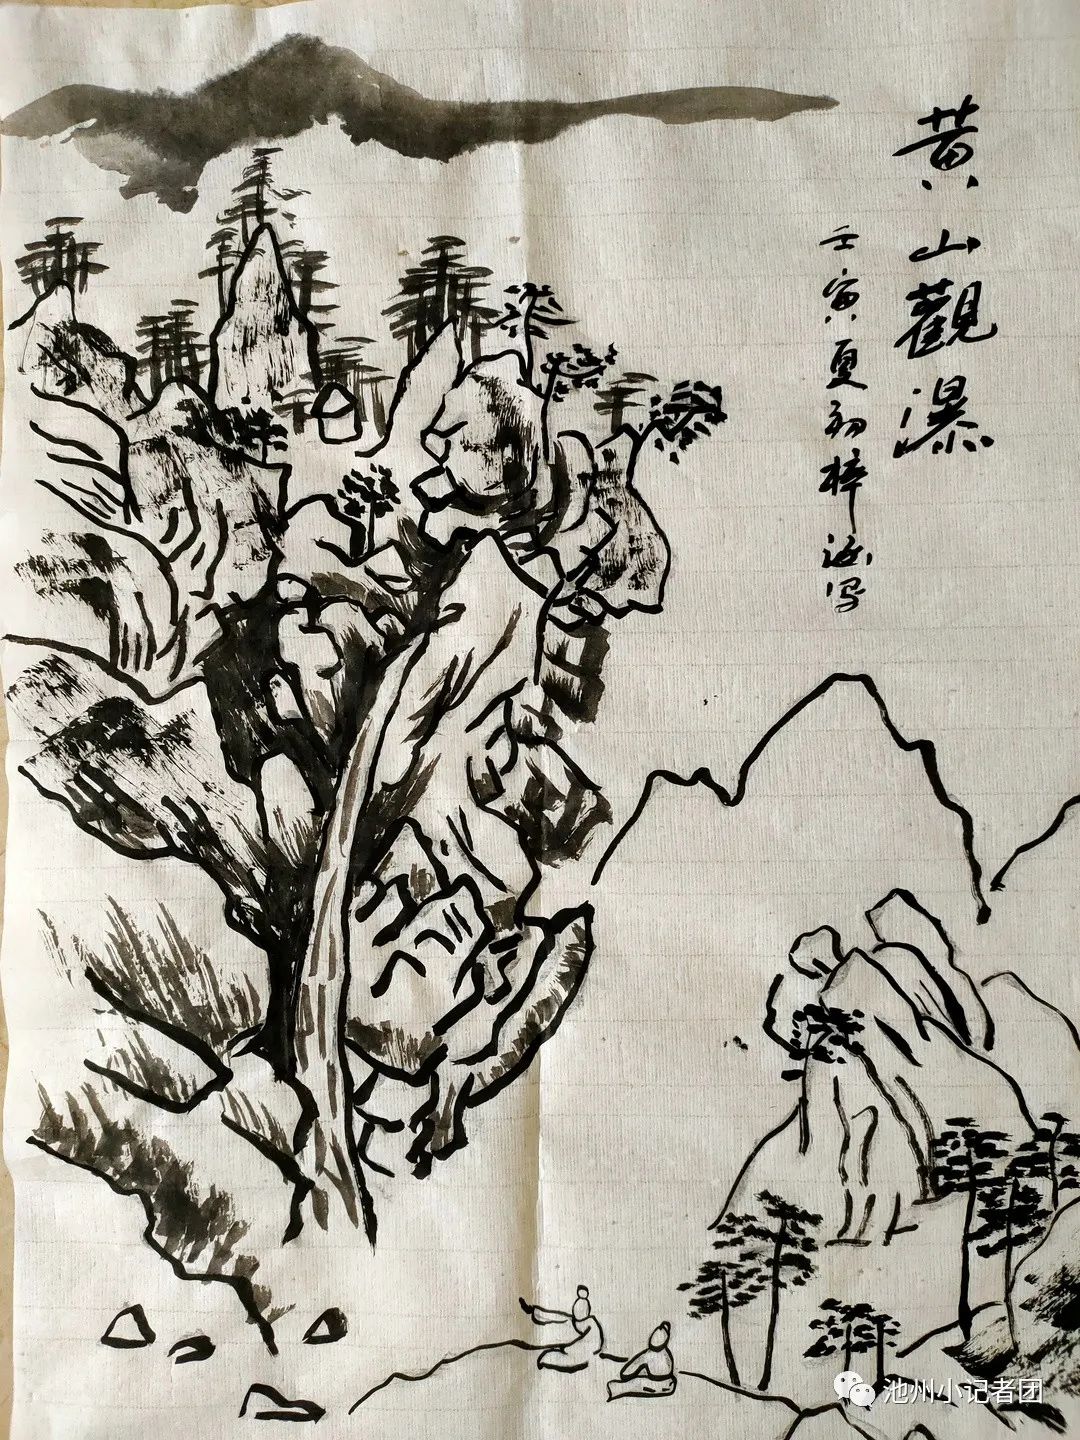 黄山觀瀑
壬寅夏初梓涵写
池州小记者团